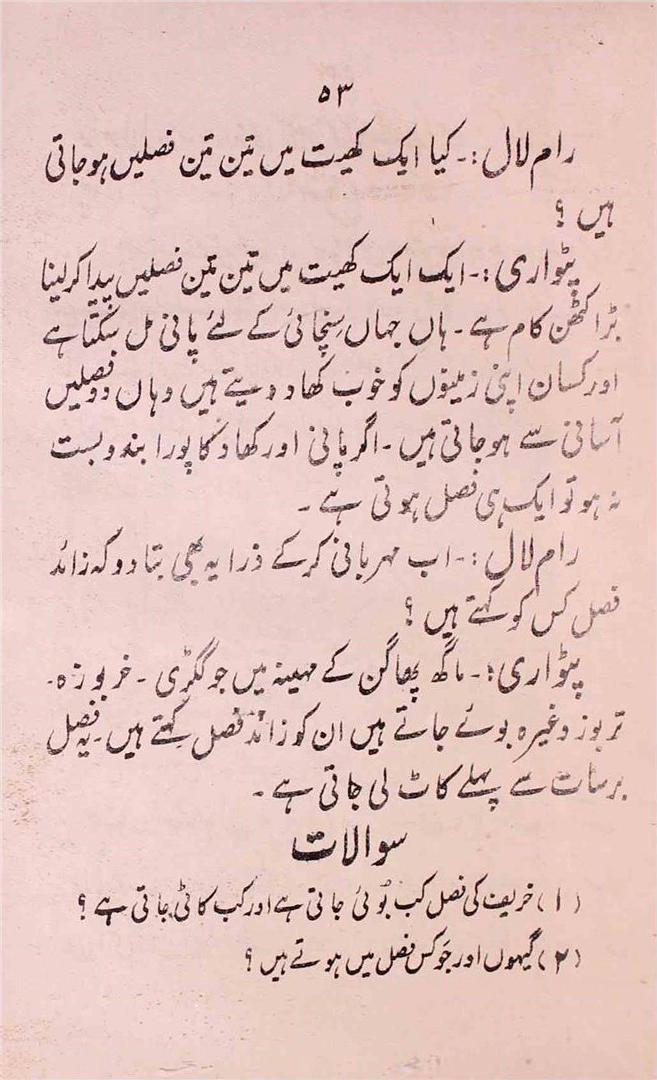 ۵۳
رام لال :۔ کیا ایک کھیت میں تین تین فصلیں ہو جاتی
ہیں ؟
پٹواری :۔ ایک ایک کھیت میں تین تین فصلیں پیدا کر لینا
بڑا کٹھن کام ہے ۔ ہاں جہاں سِنچائی کے لئے پانی مل سکتا ہے
اور کسان اپنی زمینوں کو خوب کھاد دیتے ہیں وہاں دو فصلیں
آسانی سے ہو جاتی ہیں ۔ اگر پانی اور کھاد کا پورا بندوبست
نہ ہو تو ایک ہی فصل ہوتی ہے ۔
رام لال :۔ اب مہربانی کر کے ذرا یہ بھی بتا دو کہ زائد
فصل کس کو کہتے ہیں ؟
پٹواری :۔ ماگھ پھاگن کے مہینہ میں جو ککڑی ۔ خربوزہ ۔
تربوز وغیرہ بوئے جاتے ہیں ان کو زائد فصل کہتے ہیں ۔ یہ فصل
برسات سے پہلے کاٹ لی جاتی ہے ۔
سوالات
(۱) خریف کی فصل کب بوئی جاتی ہے اور کب کاٹی جاتی ہے ؟
(۲) گیہوں اور جَو کس فصل میں ہوتے ہیں ؟